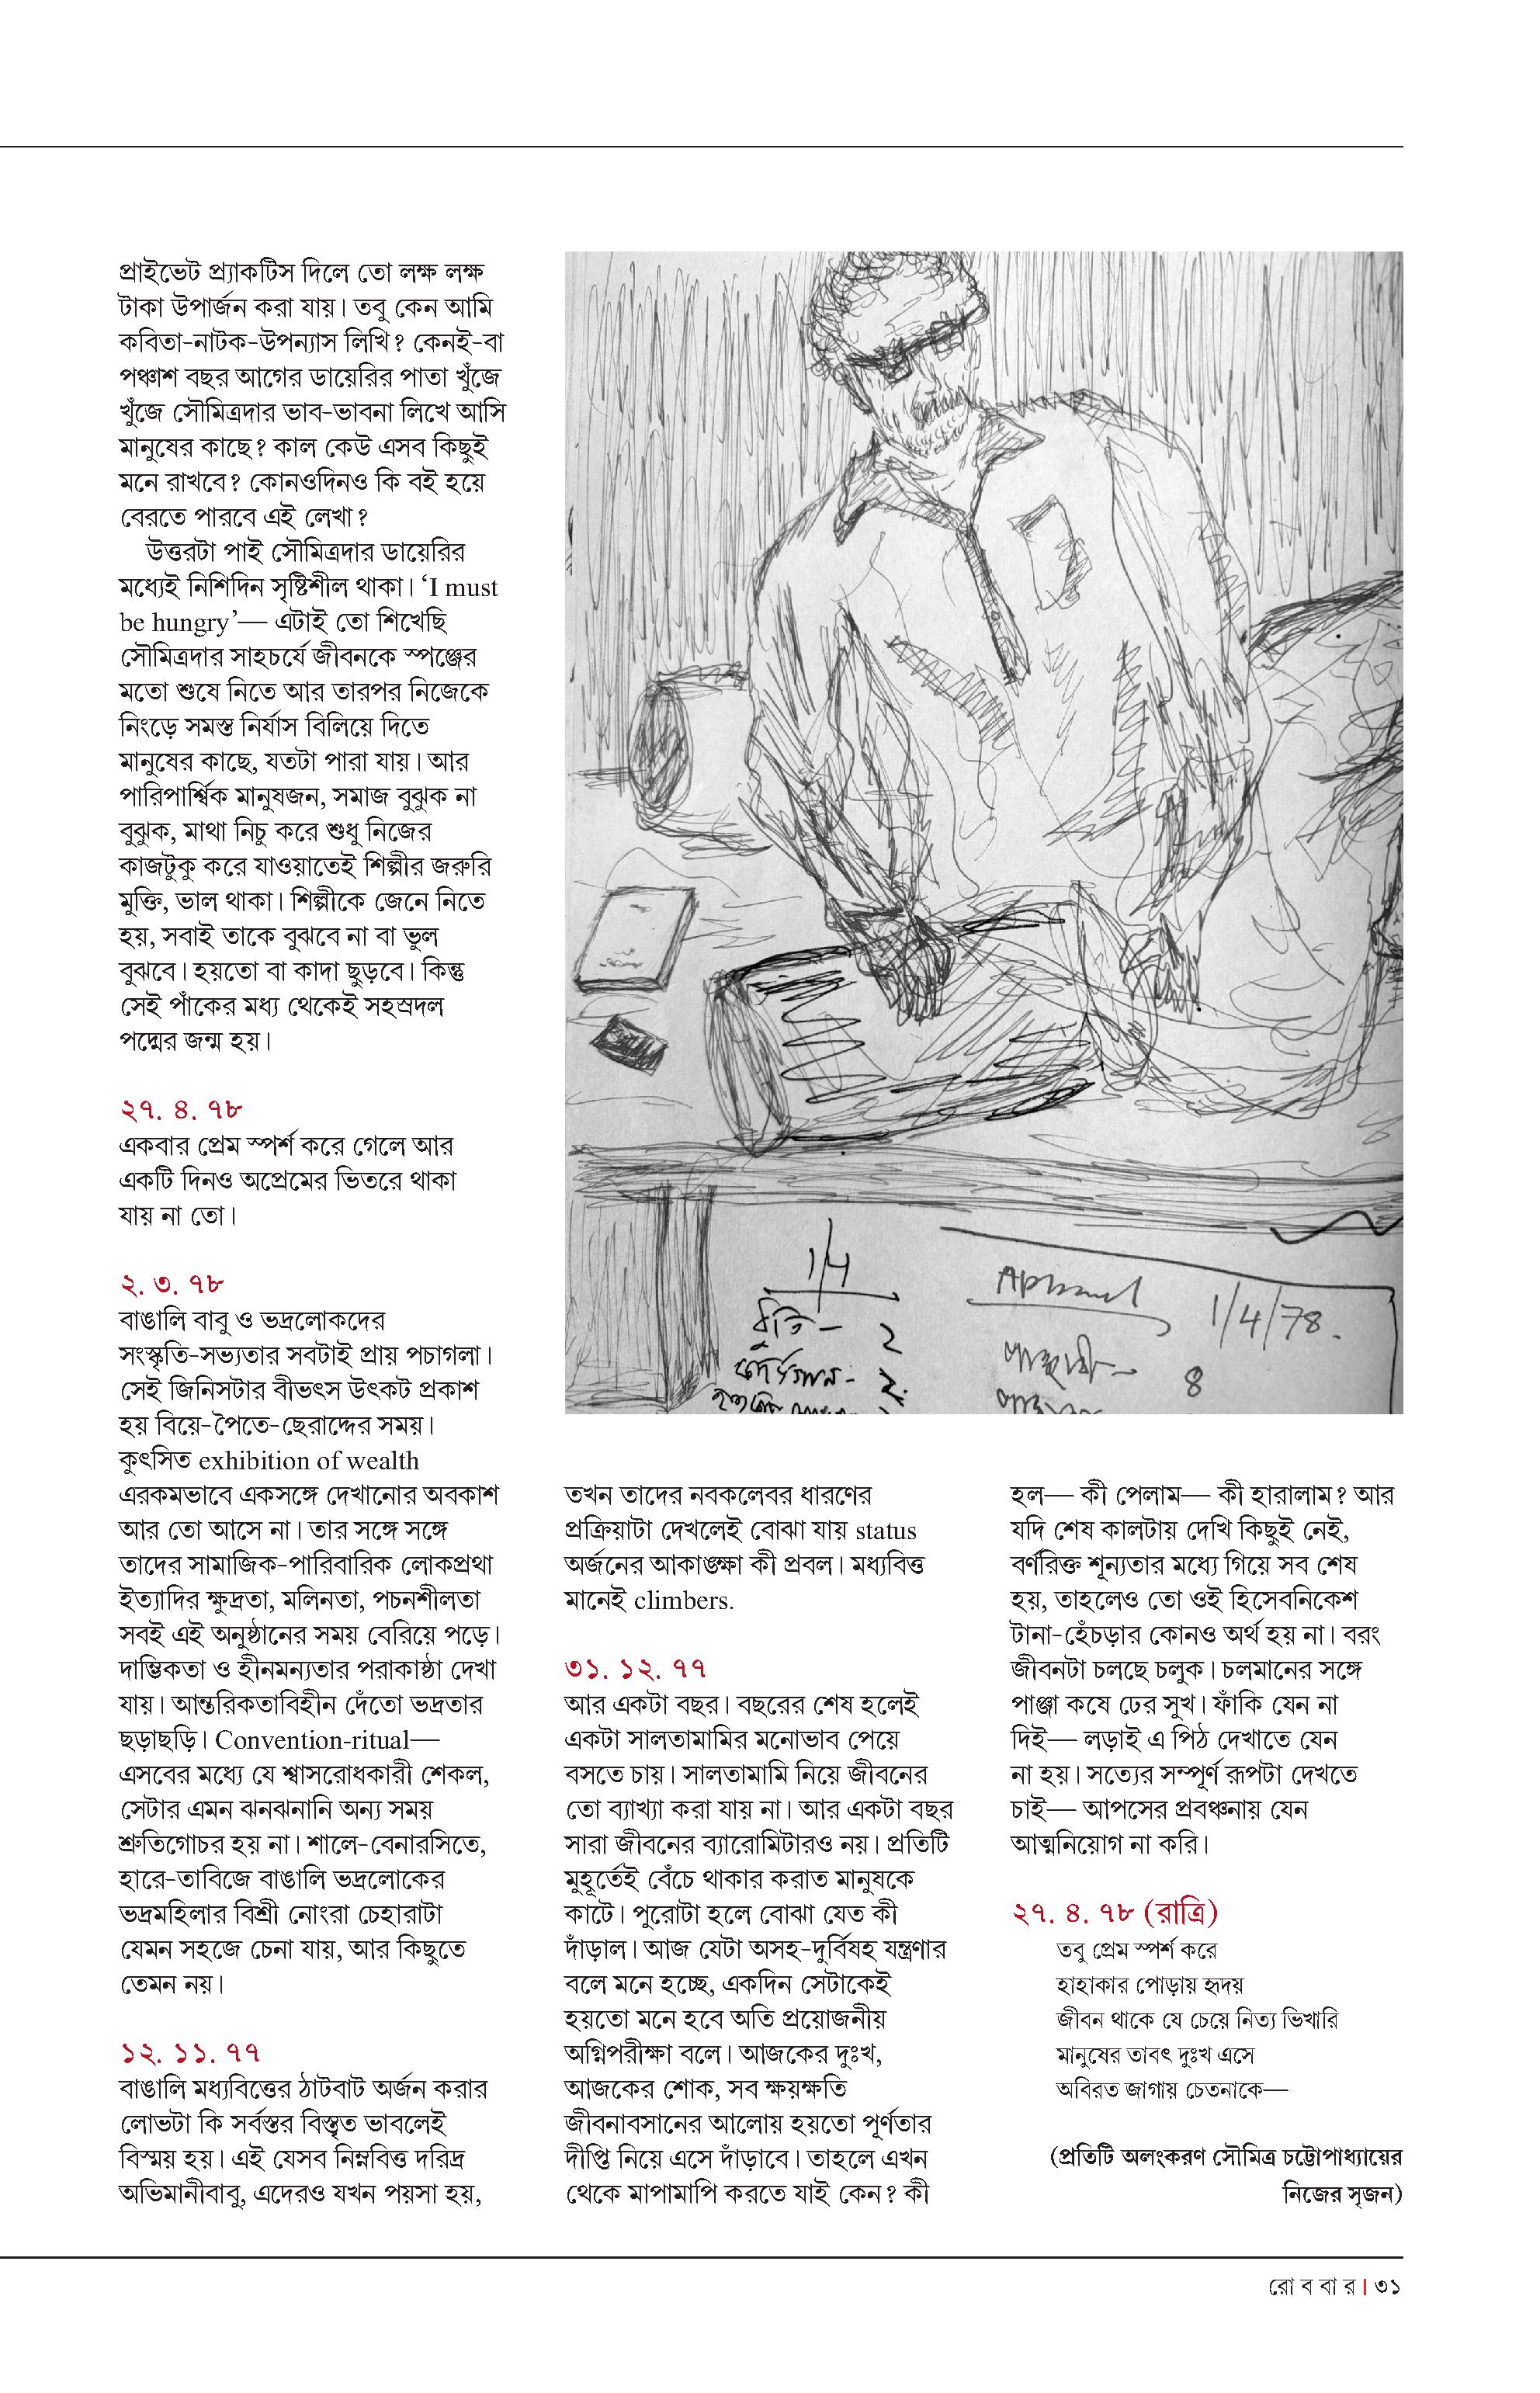 প্রাইভেট প্র্যাকটিস দিলে তো লক্ষ লক্ষ
টাকা উপার্জন করা যায়। তবু কেন আমি
কবিতা-নাটক-উপন্যাস লিখি? কেনই-বা
পঞ্চাশ বছর আগের ডায়েরির পাতা খুঁজে
খুঁজে সৌমিত্রদার ভাব-ভাবনা লিখে আসি
মানুষের কাছে? কাল কেউ এসব কিছুই
মনে রাখবে? কোনওদিনও কি বই হয়ে
বেরতে পারবে এই লেখা?
উত্তরটা পাই সৌমিত্রদার ডায়েরির
মধ্যেই নিশিদিন সৃষ্টিশীল থাকা। ‘I must
be hungry’— এটাই তো শিখেছি
সৌমিত্রদার সাহচর্যে জীবনকে স্পঞ্জের
মতো শুষে নিতে আর তারপর নিজেকে
নিংড়ে সমস্ত নির্যাস বিলিয়ে দিতে
মানুষের কাছে, যতটা পারা যায়। আর
পারিপার্শ্বিক মানুষজন, সমাজ বুঝুক না
বুঝুক, মাথা নিচু করে শুধু নিজের
কাজটুকু করে যাওয়াতেই শিল্পীর জরুরি
মুক্তি, ভাল থাকা। শিল্পীকে জেনে নিতে
হয়, সবাই তাকে বুঝবে না বা ভুল
বুঝবে। হয়তো বা কাদা ছুড়বে। কিন্তু
সেই পাঁকের মধ্য থেকেই সহস্রদল
পদ্মের জন্ম হয়।
২৭. ৪. ৭৮
একবার প্রেম স্পর্শ করে গেলে আর
একটি দিনও অপ্রেমের ভিতরে থাকা
যায় না তো।
২. ৩. ৭৮
বাঙালি বাবু ও ভদ্রলোকদের
সংস্কৃতি-সভ্যতার সবটাই প্রায় পচাগলা।
সেই জিনিসটার বীভৎস উৎকট প্রকাশ
হয় বিয়ে-পৈতে-ছেরাদ্দের সময়।
কুৎসিত exhibition of wealth
এরকমভাবে একসঙ্গে দেখানোর অবকাশ
আর তো আসে না। তার সঙ্গে সঙ্গে
তাদের সামাজিক-পারিবারিক লোকপ্রথা
ইত্যাদির ক্ষুদ্রতা, মলিনতা, পচনশীলতা
সবই এই অনুষ্ঠানের সময় বেরিয়ে পড়ে।
দাম্ভিকতা ও হীনমন্যতার পরাকাষ্ঠা দেখা
যায়। আন্তরিকতাবিহীন দেঁতো ভদ্রতার
ছড়াছড়ি। Convention-ritual—
এসবের মধ্যে যে শ্বাসরোধকারী শেকল,
সেটার এমন ঝনঝনানি অন্য সময়
শ্রুতিগোচর হয় না। শালে-বেনারসিতে,
হারে-তাবিজে বাঙালি ভদ্রলোকের
ভদ্রমহিলার বিশ্রী নোংরা চেহারাটা
যেমন সহজে চেনা যায়, আর কিছুতে
তেমন নয়।
১২. ১১. ৭৭
বাঙালি মধ্যবিত্তের ঠাটবাট অর্জন করার
লোভটা কি সর্বস্তর বিস্তৃত ভাবলেই
বিস্ময় হয়। এই যেসব নিম্নবিত্ত দরিদ্র
অভিমানীবাবু, এদেরও যখন পয়সা হয়,
1/4
2
1/4/78.
8
তখন তাদের নবকলেবর ধারণের
প্রক্রিয়াটা দেখলেই বোঝা যায় status
অর্জনের আকাঙ্ক্ষা কী প্রবল। মধ্যবিত্ত
মানেই climbers.
৩১. ১২. ৭৭
আর একটা বছর। বছরের শেষ হলেই
একটা সালতামামির মনোভাব পেয়ে
বসতে চায়। সালতামামি নিয়ে জীবনের
তো ব্যাখ্যা করা যায় না। আর একটা বছর
সারা জীবনের ব্যারোমিটারও নয়। প্রতিটি
মুহূর্তেই বেঁচে থাকার করাত মানুষকে
কাটে। পুরোটা হলে বোঝা যেত কী
দাঁড়াল। আজ যেটা অসহ-দুর্বিষহ যন্ত্রণার
বলে মনে হচ্ছে, একদিন সেটাকেই
হয়তো মনে হবে অতি প্রয়োজনীয়
অগ্নিপরীক্ষা বলে। আজকের দুঃখ,
আজকের শোক, সব ক্ষয়ক্ষতি
জীবনাবসানের আলোয় হয়তো পূর্ণতার
দীপ্তি নিয়ে এসে দাঁড়াবে। তাহলে এখন
থেকে মাপামাপি করতে যাই কেন? কী
হল— কী পেলাম— কী হারালাম? আর
যদি শেষ কালটায় দেখি কিছুই নেই,
বর্ণরিক্ত শূন্যতার মধ্যে গিয়ে সব শেষ
হয়, তাহলেও তো ওই হিসেবনিকেশ
টানা-হেঁচড়ার কোনও অর্থ হয় না। বরং
জীবনটা চলছে চলুক। চলমানের সঙ্গে
পাঞ্জা কষে ঢের সুখ। ফাঁকি যেন না
দিই— লড়াই এ পিঠ দেখাতে যেন
না হয়। সত্যের সম্পূর্ণ রূপটা দেখতে
চাই— আপসের প্রবঞ্চনায় যেন
আত্মনিয়োগ না করি।
২৭. ৪. ৭৮ (রাত্রি)
তবু প্রেম স্পর্শ করে
হাহাকার পোড়ায় হৃদয়
জীবন থাকে যে চেয়ে নিত্য ভিখারি
মানুষের তাবৎ দুঃখ এসে
অবিরত জাগায় চেতনাকে—
(প্রতিটি অলংকরণ সৌমিত্র চট্টোপাধ্যায়ের
নিজের সৃজন)
রোববার | ৩১